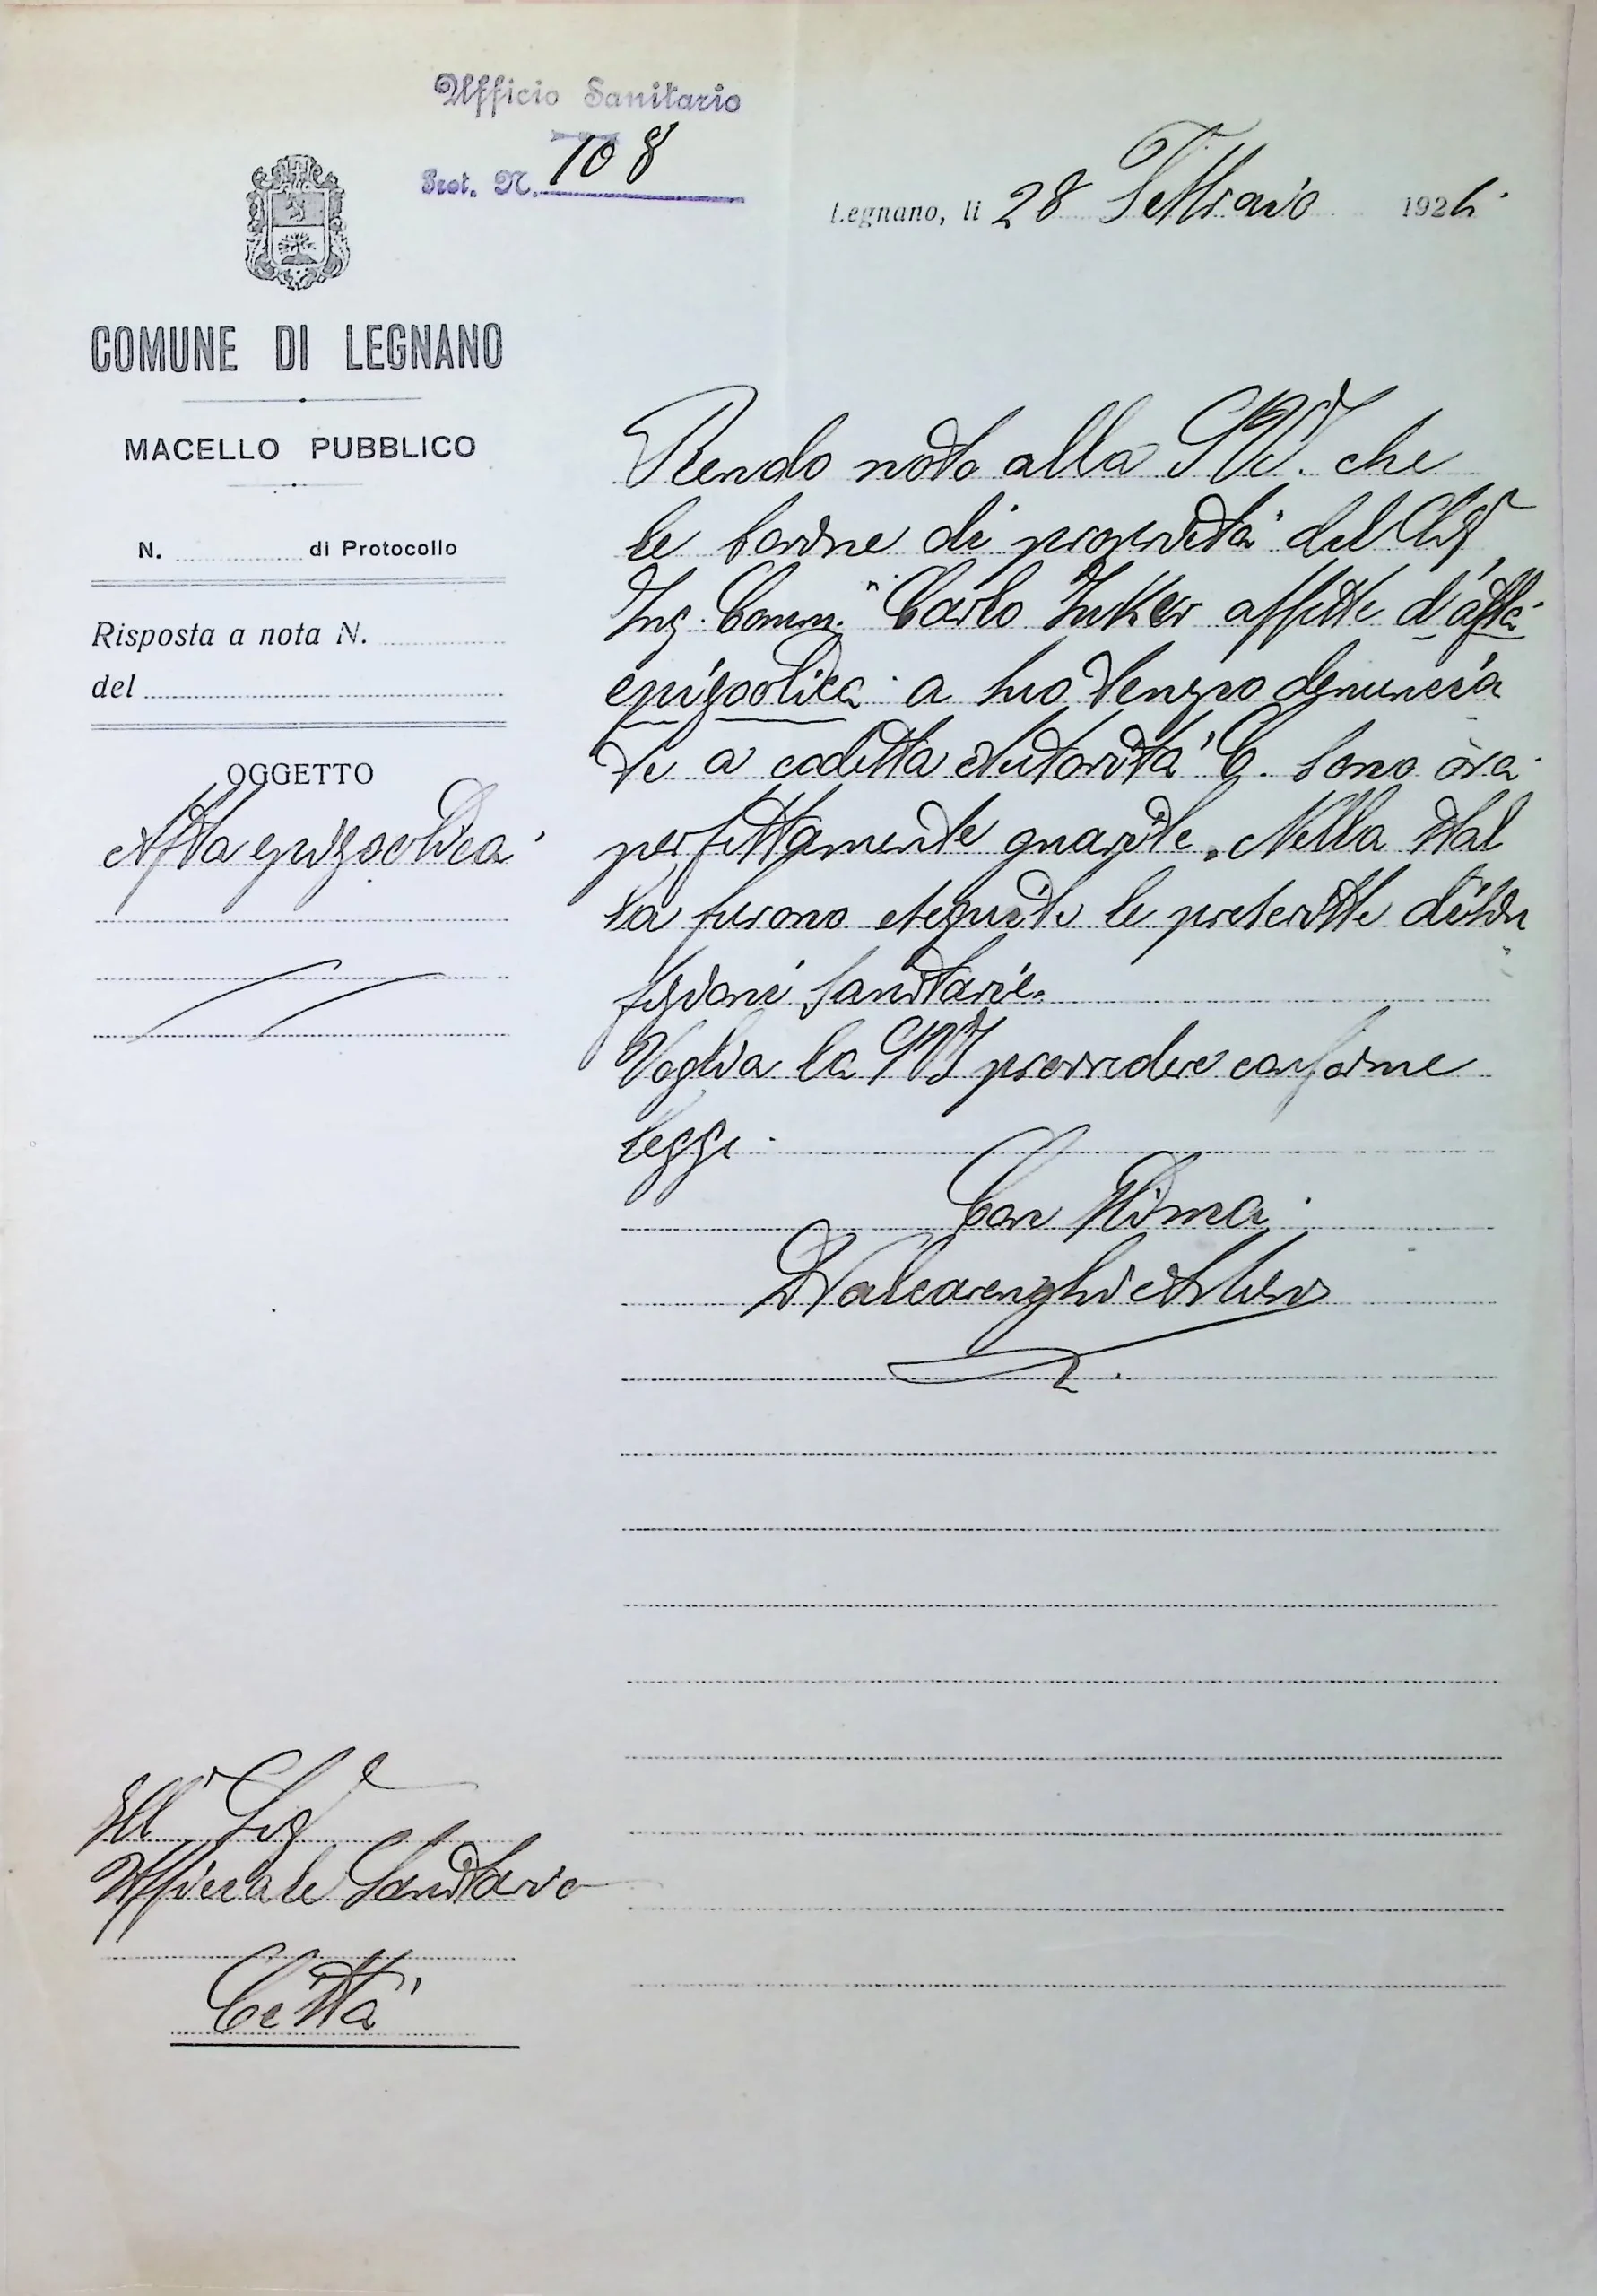 Ufficio Sanitario
Prot. N. 108
Legnano, li 28 Febbraio 1926.
COMUNE DI LEGNANO
MACELLO PUBBLICO
N. di Protocollo
Risposta a nota N.
del
OGGETTO
Afta epizootica
Rendo noto alla S.V.I. che
le bovine di proprietà del
Ing. Comm. Carlo affette d'afta
epizootica a suo tempo denuncia
te a codesta Autorità C. sono ora
perfettamente guarite. Nella stal
la furono eseguite le prescritte disin
fezioni sanitarie.
Voglia la SVI provvedere conforme
legge.
Con stima
D Valcarenghi Arturo
Ill Sig
Ufficiale Sanitario
Città